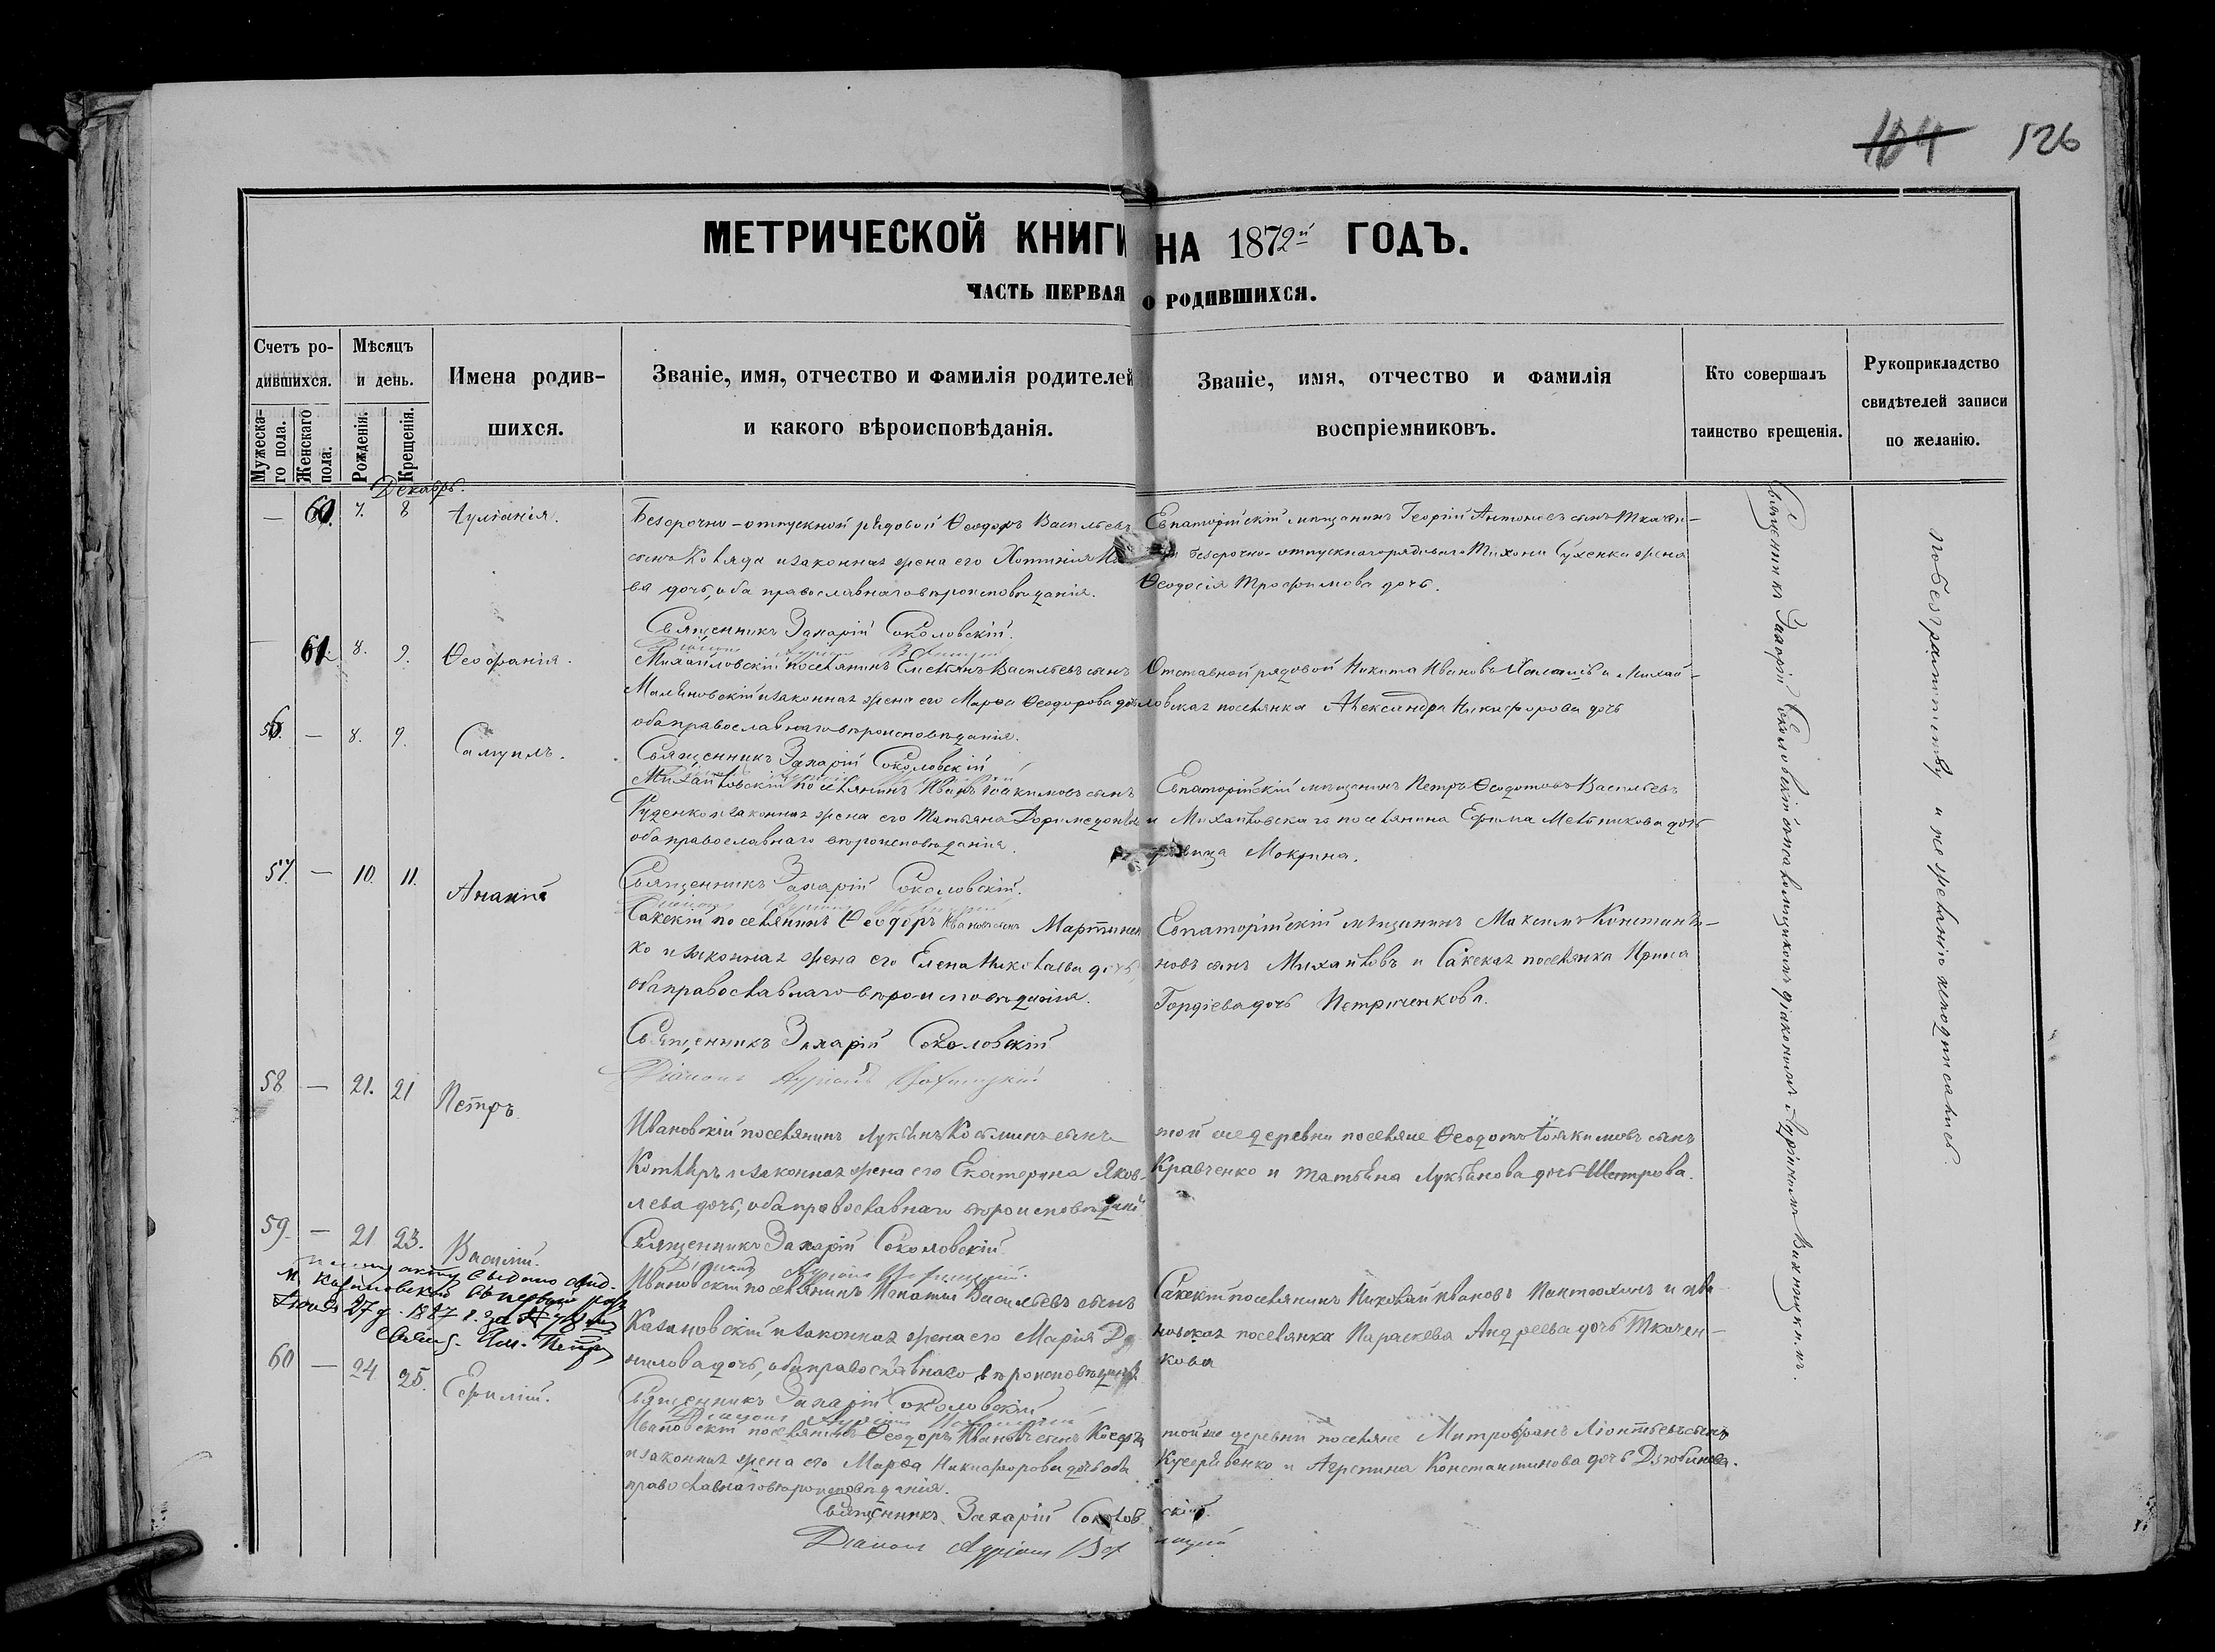 104 526
МЕТРИЧЕСКОЙ КНИГИ НА 1872й ГОДЪ.
ЧАСТЬ ПЕРВАЯ О РОДИВШИХСЯ.
Счетъ родившихся.
Мужескаго пола.
Женскаго пола.
Мѣсяцъ и день.
Рожденія.
Крещенія.
Имена родившихся.
Званіе, имя, отчество и фамилія родителей
и какого вѣроисповѣданія.
Званіе, имя, отчество и фамилія
воспріемниковъ.
Кто совершалъ
таинство крещенія.
Рукоприкладство
свидѣтелей записи
по желанію.
Декабрь.
— 60. 7. 8
Безсрочно-отпускной рядовой Ѳеодоръ Васильевъ
сынъ Коляда и законная жена его Хотинія
ва дочь, оба православнаго вѣроисповѣданія.
Евпаторійскій мѣщанинъ Георгій Антоніевъ сынъ Ткачен-
безсрочно-отпускнаго рядоваго Тихона Сухенки жена
Ѳеодосія Трофимова дочь.
Священникъ Захарій Соколовскій.
— 61 8. 9. Ѳеофанія.
Михайловскій поселянинъ Емельянъ Васильевъ сынъ
Малиновскій и законная жена его Марѳа Ѳеодорова дочь
оба православнаго вѣроисповѣданія.
Отставной рядовой Никита Ивановъ и Михай-
ловская поселянка Александра Никифорова дочь
Священникъ Захарій Соколовскій
56. — 8. 9. Самуилъ.
Михайловскій поселянинъ Иванъ Іоакимовъ сынъ
Руденко и законная жена его Татьяна
оба православнаго вѣроисповѣданія.
Евпаторійскій мѣщанинъ Петръ Ѳеодотовъ Васильевъ
и Михайловскаго поселянина Ефима Мельникова дочь
Мокрина.
Священникъ Захарій Соколовскій.
57. — 10. 11. Ананій
Сакскій поселянинъ Ѳеодоръ Ивановъ сынъ Мартинен
ко и законная жена его Елена Николаева дочь,
оба православнаго вѣроисповѣданія.
Евпаторійскій мѣщанинъ Максимъ Константи-
новъ сынъ Михайловъ и Сакская поселянка Ирина
Гордіева дочь Петриченкова.
Священникъ Захарій Соколовскій
Діаконъ
58 — 21. 21 Петръ
Ивановскій поселянинъ Лукьянъ Косьминъ сынъ
Котляръ и законная жена его Екатерина Яков-
лева дочь, оба православнаго вѣроисповѣданія
той же деревни поселяне Ѳеодотъ Іоакимовъ сынъ
Кравченко и Татьяна Лукьянова дочь
Священникъ Захарій Соколовскій.
59. — 21 23. Василій.
Ивановскій поселянинъ Игнатій Васильевъ сынъ
Казановскій и законная жена его Марія Да
нилова дочь, оба православнаго вѣроисповѣданія
Сакскій поселянинъ Николай Ивановъ Пантюхинъ и Ива
новская поселянка Параскева Андреева дочь Ткачен-
кова
Священникъ Захарій Соколовскій
60 — 24 25.
Ивановскій поселянинъ Ѳеодоръ Ивановъ сынъ
и законная жена его Марѳа Никифорова дочь оба
православнаго вѣроисповѣданія.
той же деревни поселяне Митрофанъ Леонтьевъ сынъ
Кучерявенко и Агрепина Константинова дочь Дзюбинова.
Священникъ Захарій Соколовскій.
Діаконъ
Священникъ Захарій Соколовскій съ псаломщикомъ діакономъ
По безграмотству и не желанію неподписались.